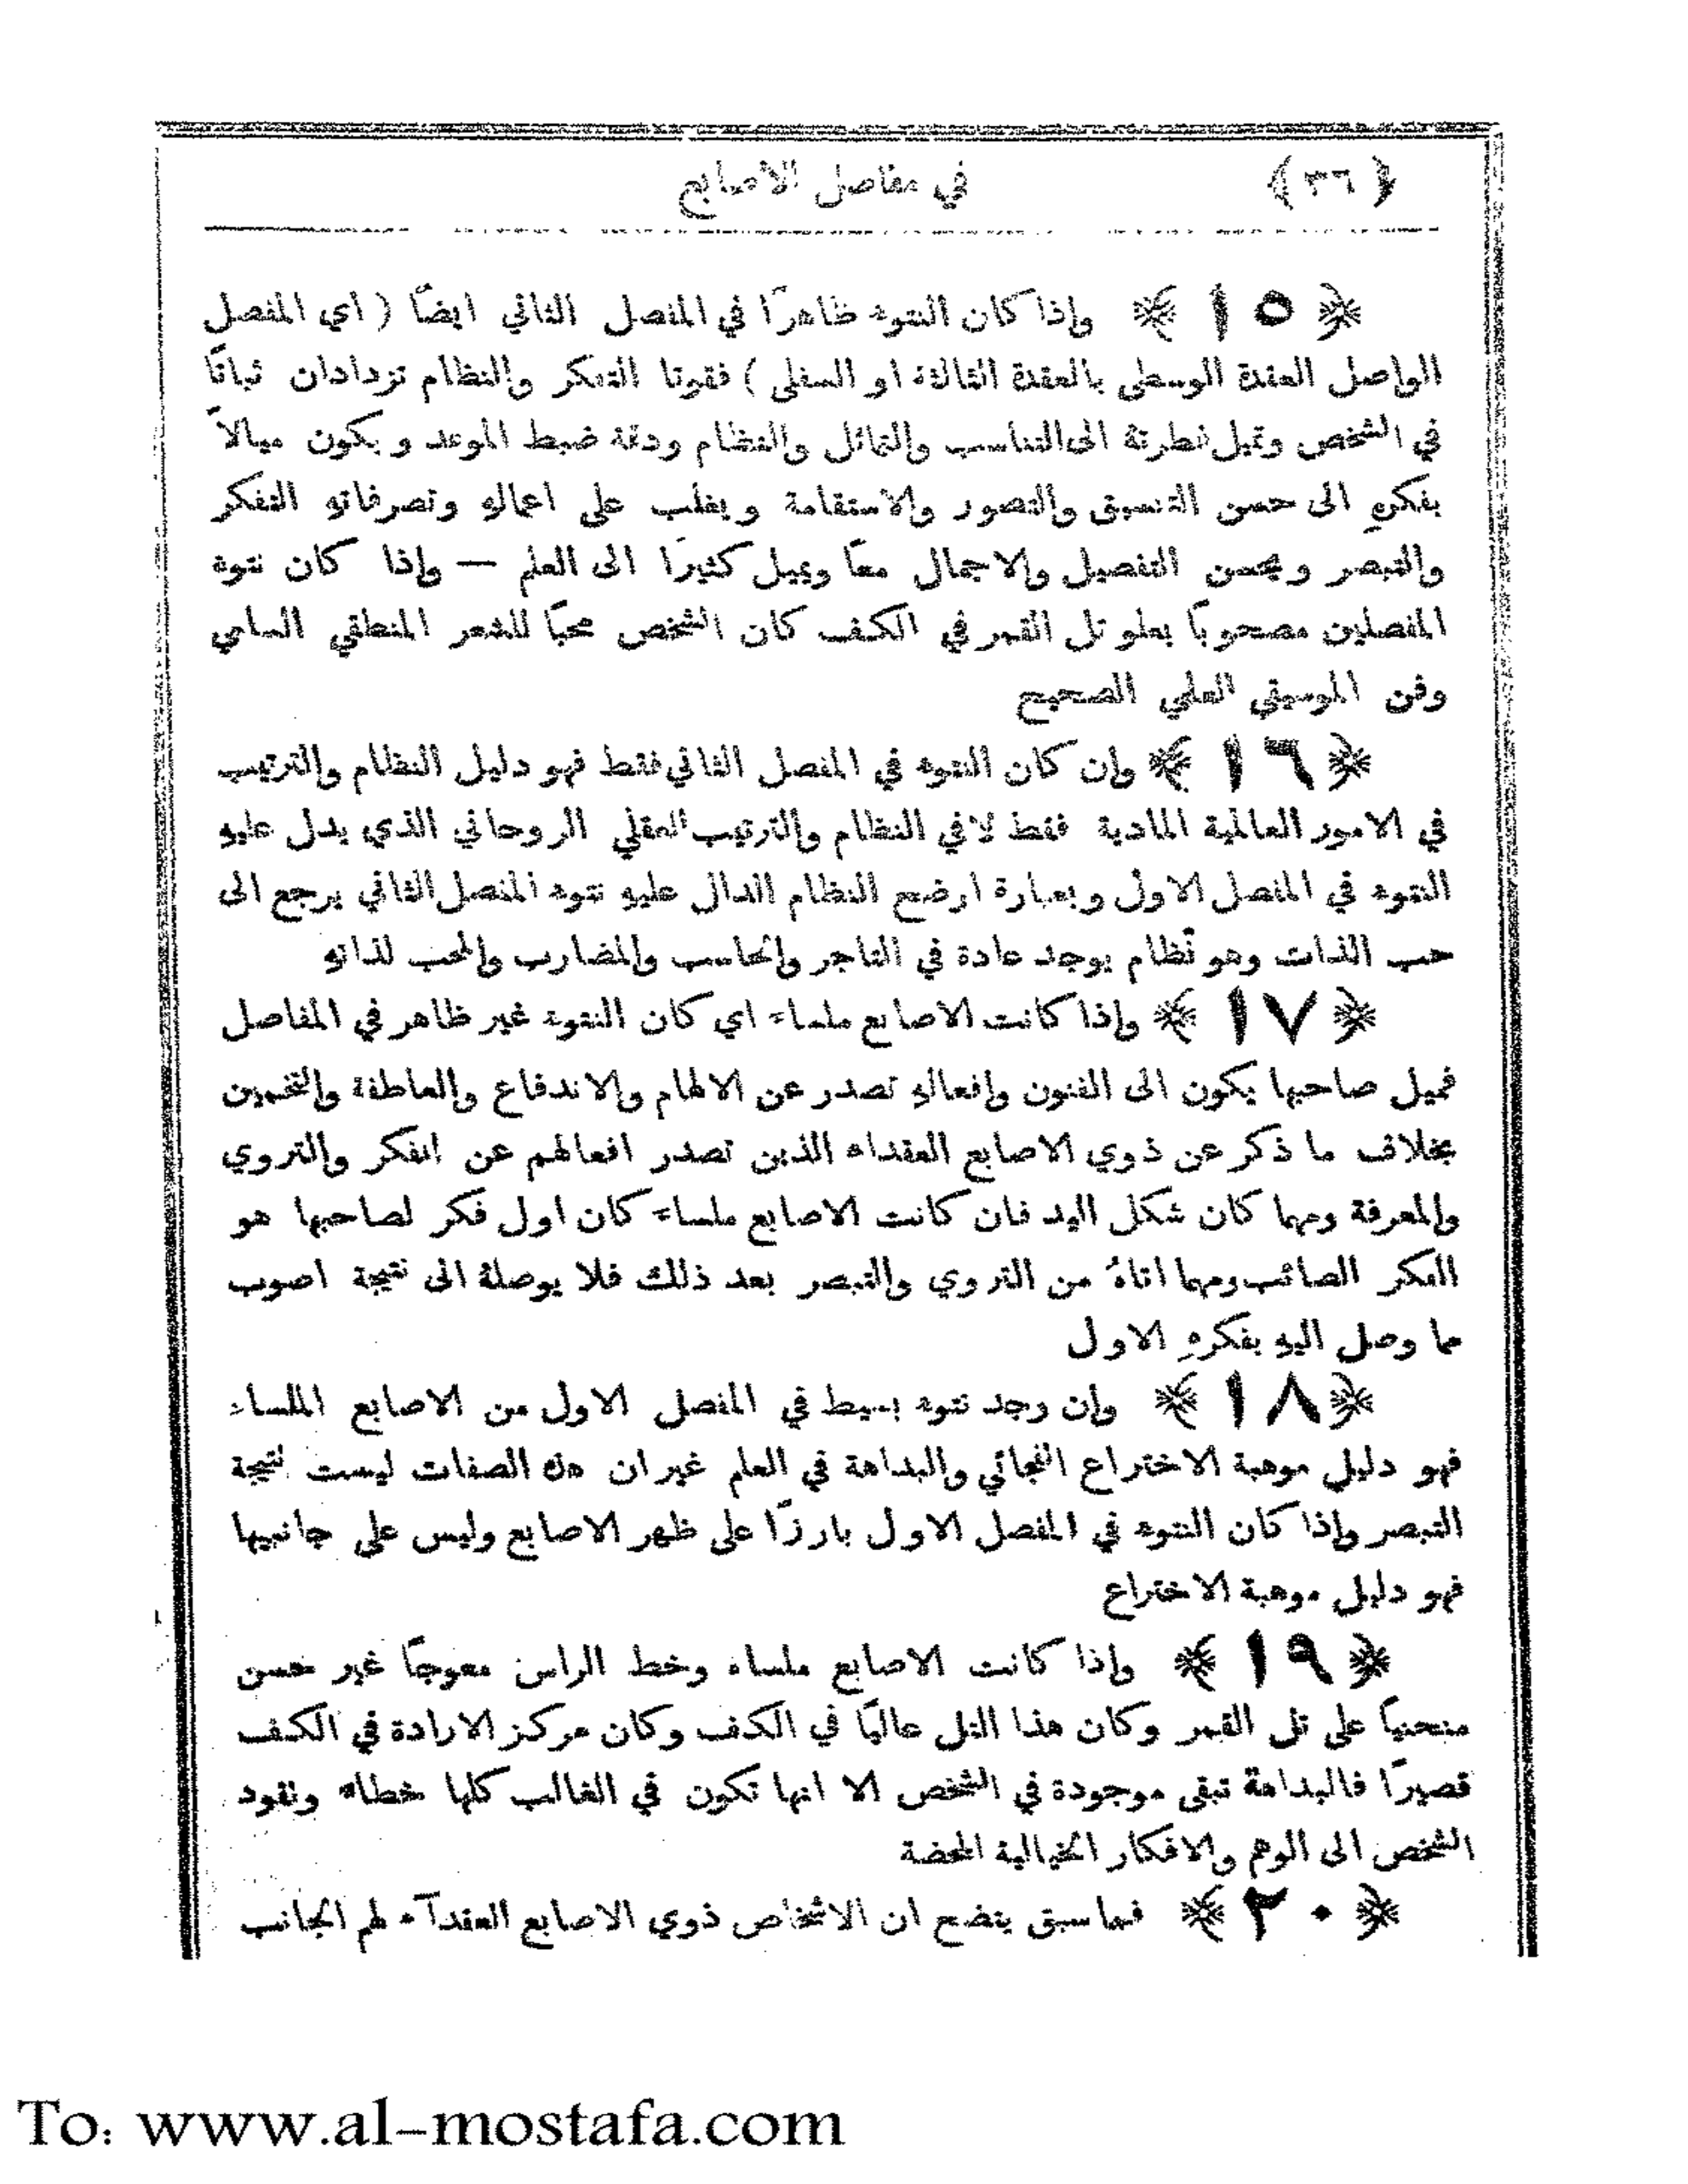 ﴿ ٣٦ ﴾ في مفاصل الاصابع
﴿ ١٥ ﴾ واذا كان النتوء ظاهرًا في المفصل الثاني ايضًا ( اي المفصل
الواصل العقدة الوسطى بالعقدة الثالثة او السفلى ) فقوتا التفكر والنظام تزدادان ثباتًا
في الشخص وتميل فطرتهُ الى التناسب والتماثل والنظام ودقة ضبط الموعد ويكون ميالاً
بفكرهِ الى حسن التنسيق والتصور والاستقامة ويغلب على اعمالهِ وتصرفاتهِ التفكر
والتبصر ويحسن التفصيل والاجمال معًا ويميل كثيرًا الى العلم — واذا كان نتوء
المفصلين مصحوبًا بعلو تل القمر في الكف كان الشخص محبًا للشعر المنطقي السامي
وفن الموسيقي العلمي الصحيح
﴿ ١٦ ﴾ وان كان النتوء في المفصل الثاني فقط فهو دليل النظام والترتيب
في الامور العالمية المادية فقط لا في النظام والترتيب العقلي الروحاني الذي يدل عليهِ
النتوء في المفصل الاول وبعبارة اوضح النظام الدال عليهِ نتوء المفصل الثاني يرجع الى
حب الذات وهو نظام يوجد عادة في التاجر والحاسب والمضارب والمحب لذاتهِ
﴿ ١٧ ﴾ واذا كانت الاصابع ملساء اي كان النتوء غير ظاهر في المفاصل
فميل صاحبها يكون الى الفنون وافعالهِ تصدر عن الالهام والاندفاع والعاطفة والتخمين
بخلاف ما ذكر عن ذوي الاصابع العقداء الذين تصدر افعالهم عن الفكر والتروي
والمعرفة ومهما كان شكل اليد فان كانت الاصابع ملساء كان اول فكر لصاحبها هو
الفكر الصائب ومهما اتاهُ من التروي والتبصر بعد ذلك فلا يوصلهُ الى نتيجة اصوب
مما وصل اليهِ بفكرهِ الاول
﴿ ١٨ ﴾ وان وجد نتوء بسيط في المفصل الاول من الاصابع الملساء
فهو دليل موهبة الاختراع الفجائي والبداهة في العلم غير ان هذه الصفات ليست نتيجة
التبصر واذا كان النتوء في المفصل الاول بارزًا على ظهر الاصابع وليس على جانبيها
فهو دليل موهبة الاختراع
﴿ ١٩ ﴾ واذا كانت الاصابع ملساء وخط الراس معوجًا غير حسن
منحنيًا على تل القمر وكان هذا التل عاليًا في الكف وكان مركز الارادة في الكف
قصيرًا فالبداهة تبقى موجودة في الشخص الا انها تكون في الغالب كلها خطاء وتقود
الشخص الى الوهم والافكار الخيالية المحضة
﴿ ٢٠ ﴾ فمما سبق يتضح ان الاشخاص ذوي الاصابع العقدآء لهم الجانب
To: www.al-mostafa.com